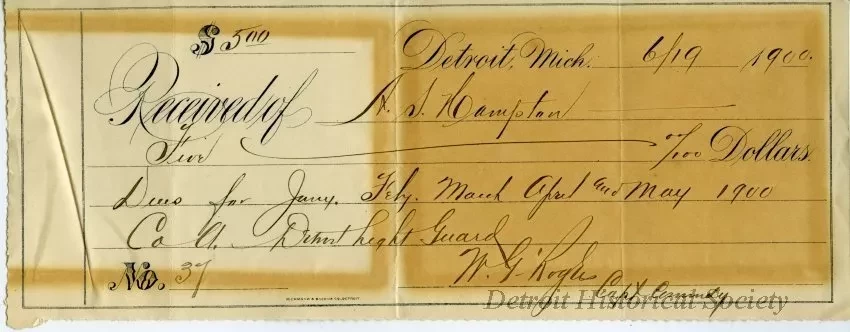 $ 5.00
Detroit, Mich. 6/19 1900.
Received of A. S. Hampton
Five 00/100 Dollars.
Dues for Jany. Feby. March April and May 1900
Co A. Detroit Light Guard
No. 37
W. G. Rogers
Capt Comindg
Detroit Historical Society